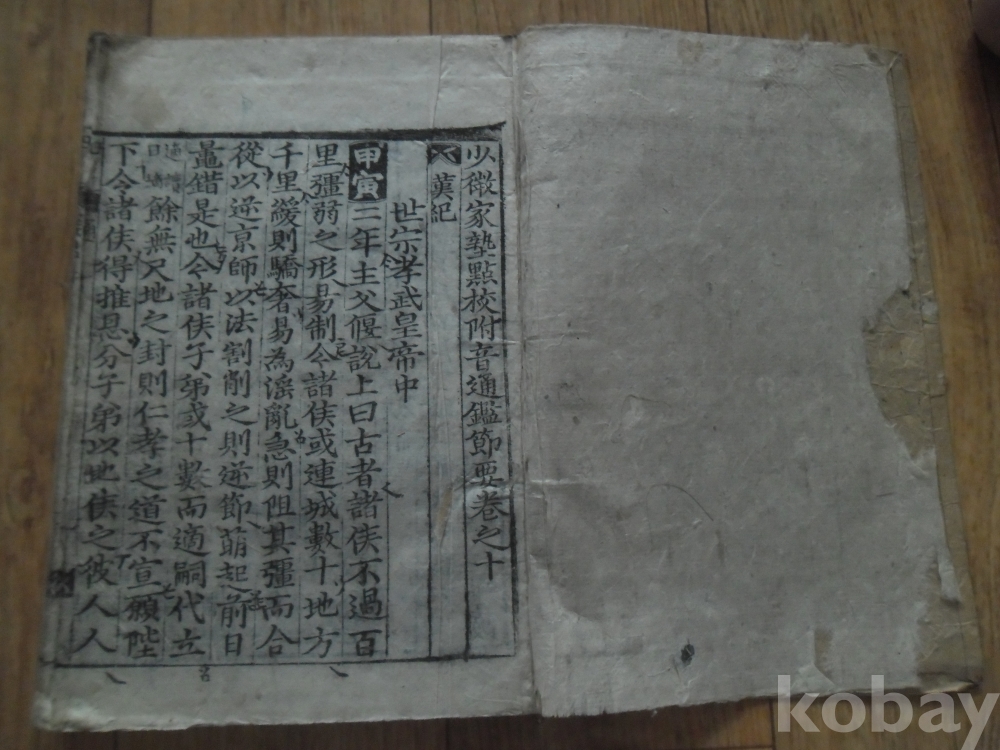 少微家塾點校附音通鑑節要卷之十
漢紀
世宗孝武皇帝中
甲寅二年主父偃說上曰古者諸侯不過百
里彊弱之形易制今諸侯或連城數十地方
千里緩則驕奢易為淫亂急則阻其彊而合
從以逆京師以法割削之則逆節萠起前日
鼂錯是也今諸侯子弟或十數而適嗣代立
餘無尺地之封則仁孝之道不宣願陛
下令諸侯得推恩分子弟以地侯之彼人人
kobay